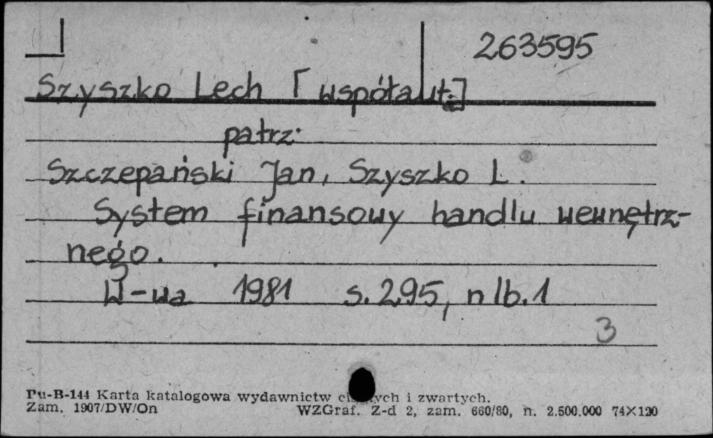 263595
Szyszko Lech [współaut.]
patrz:
Szczepański Jan, Szyszko L.
System finansowy handlu wewnętrz-
nego.
W-wa 1981 s. 295, nlb. 1
3
Pu-B-144 Karta katalogowa wydawnictw ciągłych i zwartych.
Zam. 1907/DW/On WZGraf. Z-d 2, zam. 660/80, n. 2.500.000 74×120